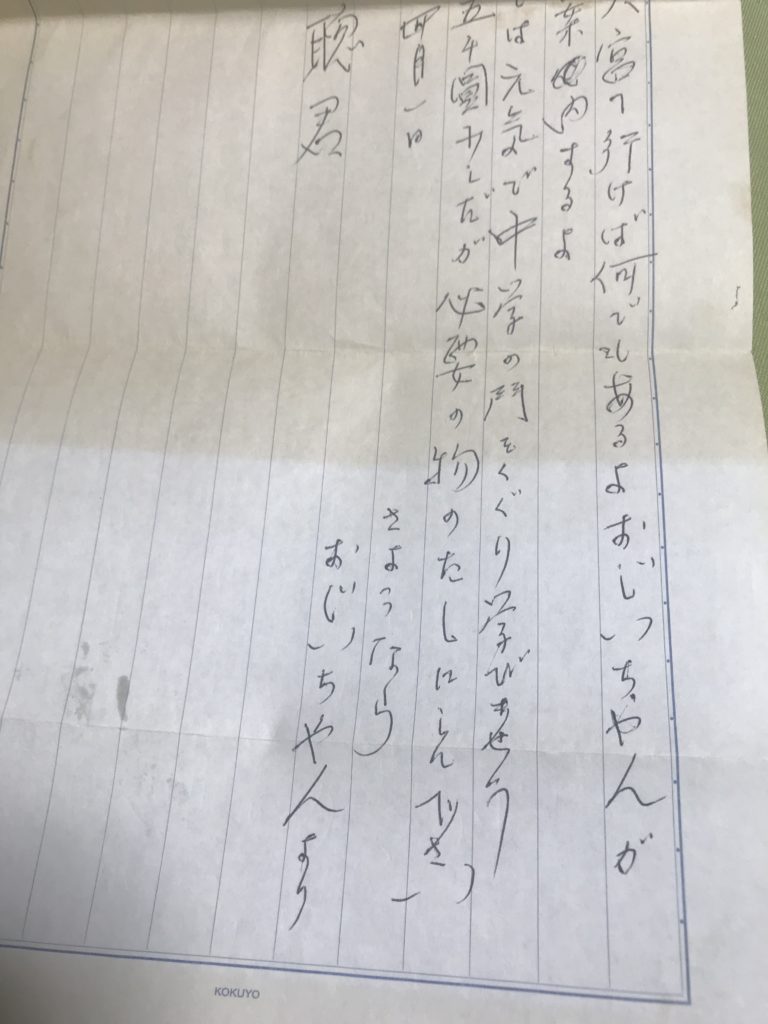 宮へ行けば何でもあるよおじいちやんが
案内するよ
は元気で中学の門をくぐり学びませう
五千圓少しだが必要の物のたしにして下さい
さようなら
四月一日
おじいちやんより
聡君
KOKUYO